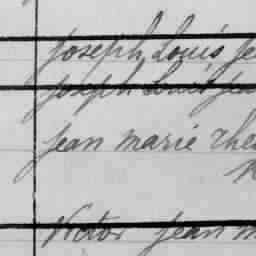 Joseph Louis Je
Joseph Louis Jea
Jean Marie The
Victor Jean M